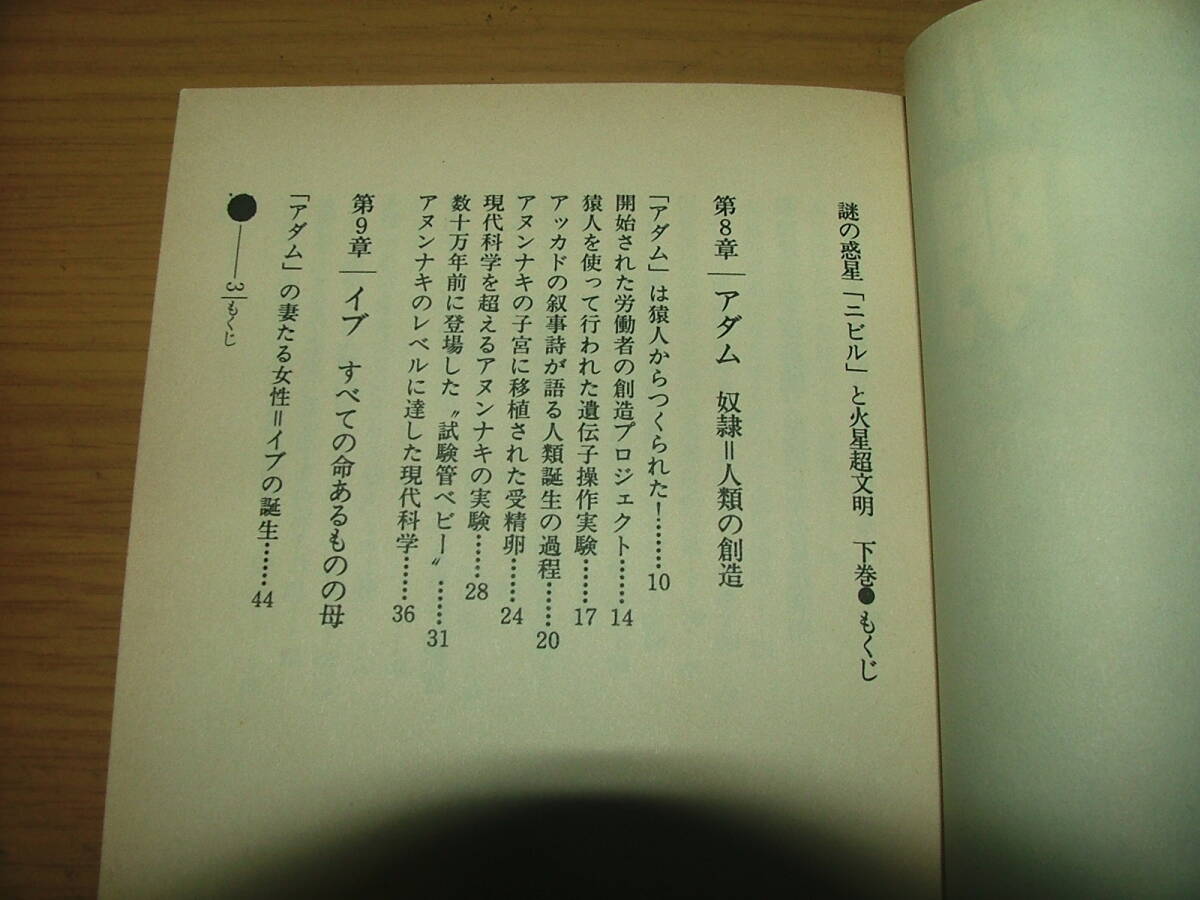 謎の惑星「ニビル」と火星超文明　下巻●もくじ
第8章｜アダム　奴隷＝人類の創造
「アダム」は猿人からつくられた！………10
開始された労働者の創造プロジェクト……14
猿人を使って行われた遺伝子操作実験……17
アッカドの叙事詩が語る人類誕生の過程……20
アヌンナキの子宮に移植された受精卵……24
現代科学を超えるアヌンナキの実験……28
数十万年前に登場した〝試験管ベビー〟……31
アヌンナキのレベルに達した現代科学……36
第9章｜イブ　すべての命あるものの母
「アダム」の妻たる女性＝イブの誕生……44
●――3｜もくじ